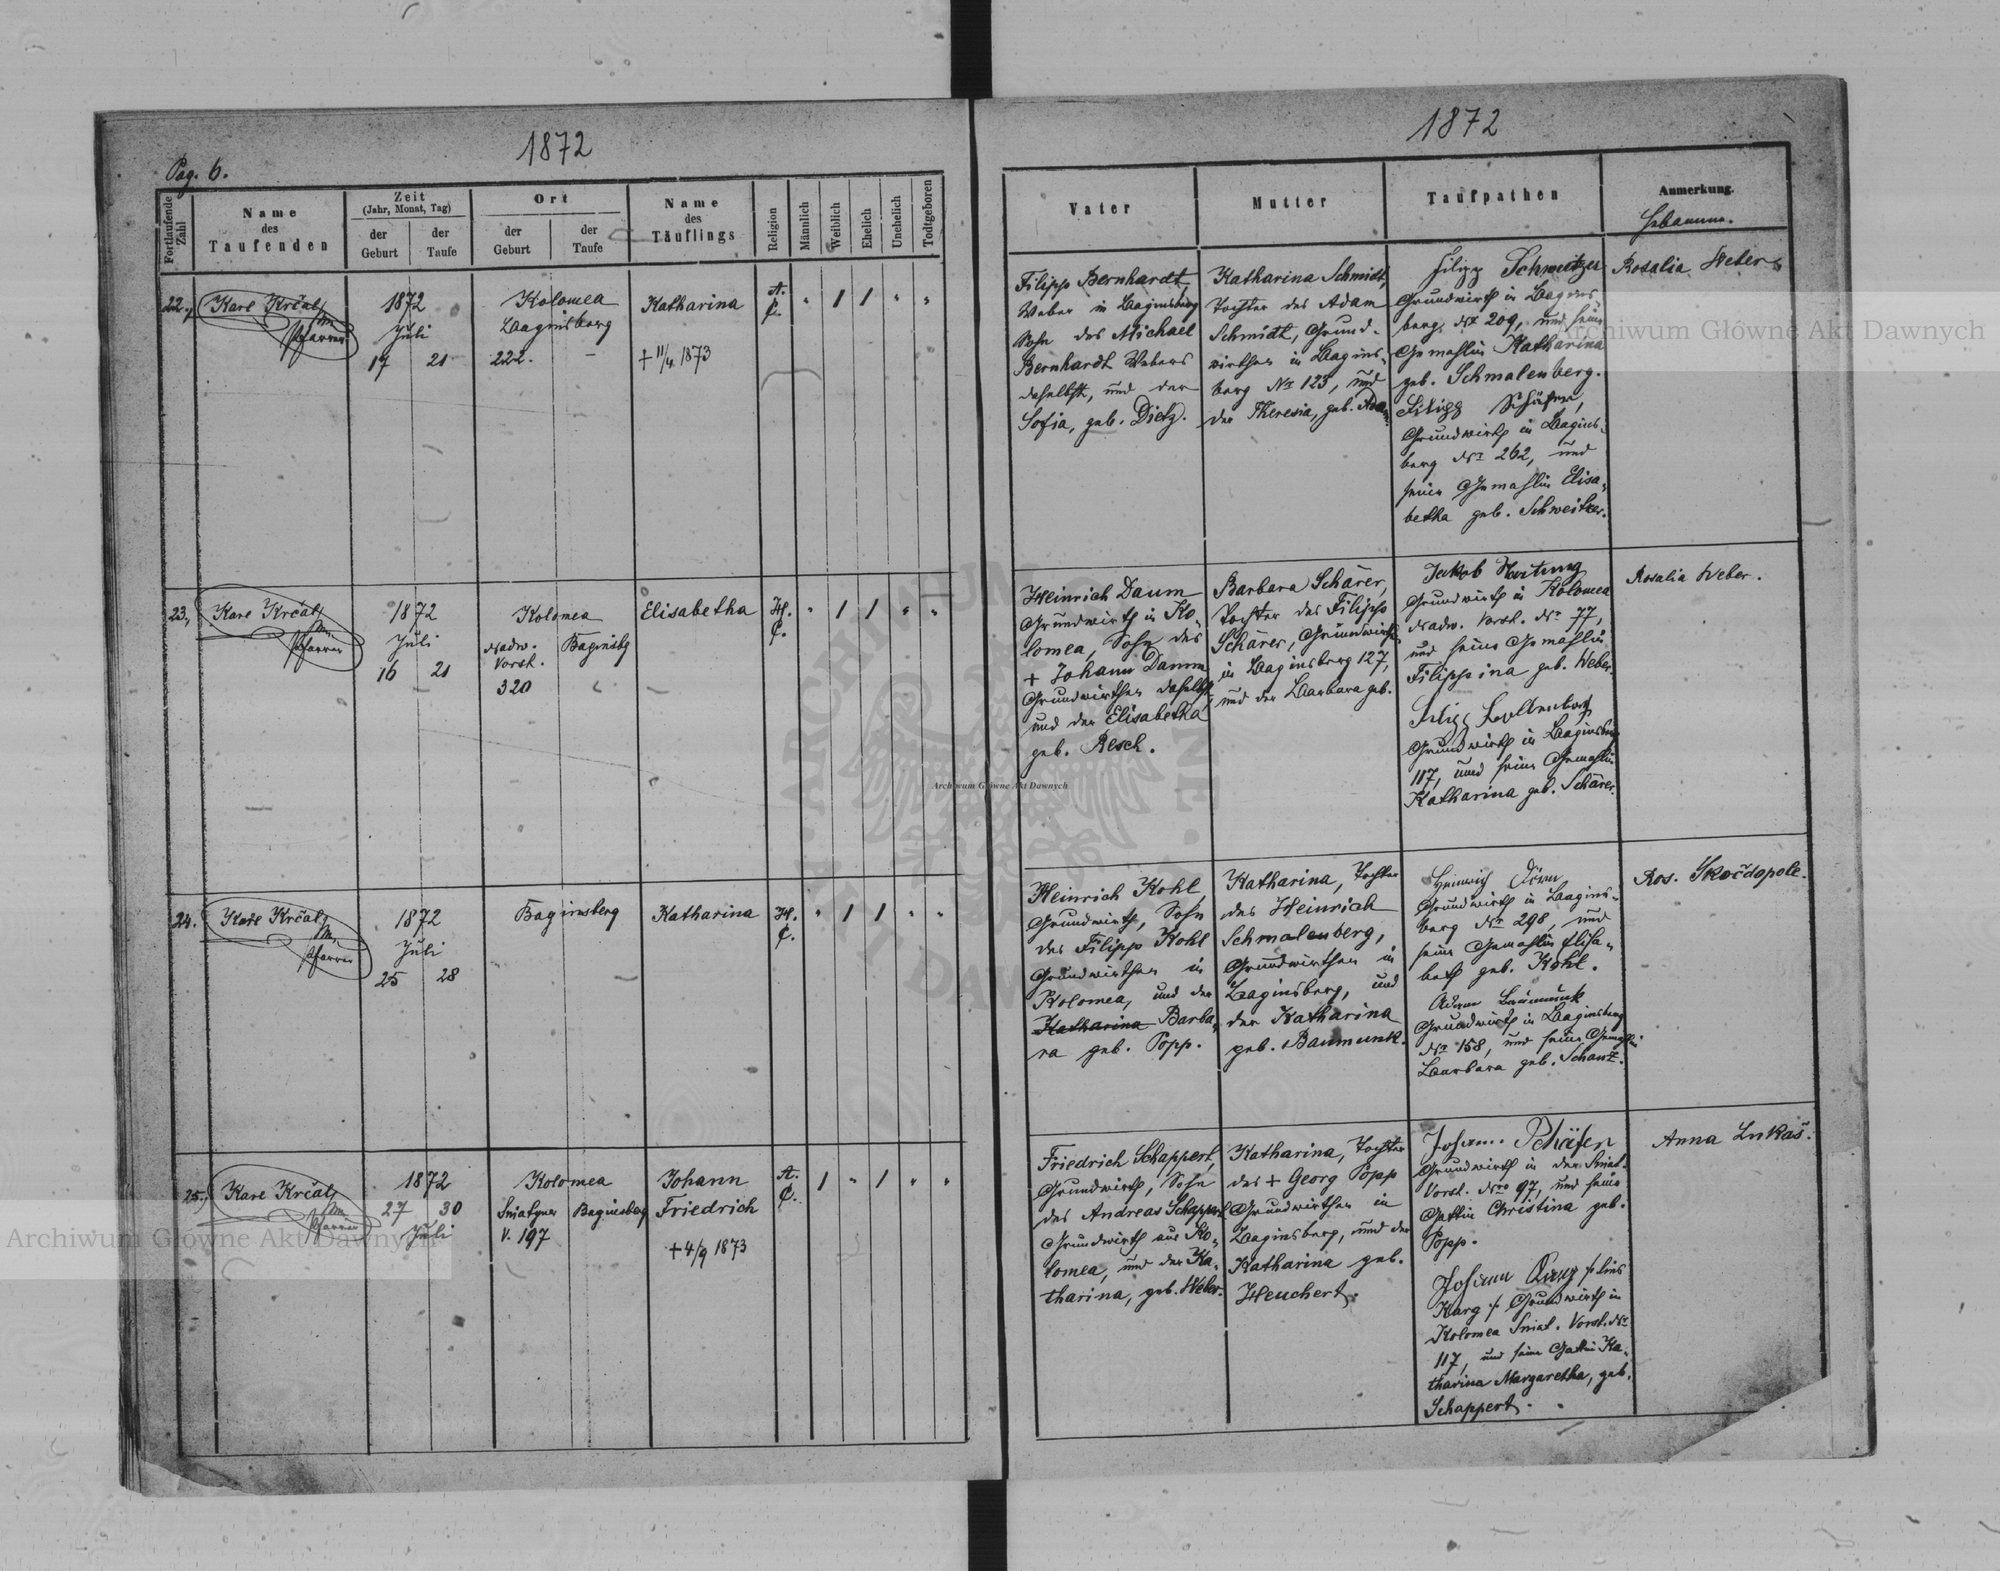 1872
Pag. 6.
Fortlaufende Zahl
Name
des
Taufenden
Zeit
(Jahr, Monat, Tag)
der
Geburt
der
Taufe
Ort
der
Geburt
der
Taufe
Name
des
Täuflings
Religion
Männlich
Weiblich
Ehelich
Unehelich
Todtgeboren
22.,
Karl Krčal
m
Pfarrer
1872
Juli
17 21
Kolomea
Baginsberg
222. –
Katharina
+ 11/4 1873
A.
C.
" / / " "
23.,
Karl Krčal
m
Pfarrer
1872
Juli
16 21
Kolomea
Nadw. Baginsbg
Vorst.
320
Elisabetha
H.
C.
" / / " "
24.
Karl Krčal
m
Pfarrer
1872
Juli
25 28
Baginsberg
Katharina
H.
C.
" / / " "
25.,
Karl Krčal
m
Pfarrer
1872
27 30
Juli
Kolomea
Sniatyner Baginsberg
V. 197
Johann
Friedrich
+ 4/9 1873
A.
C.
/ " / " "
1872
Vater
Mutter
Taufpathen
Anmerkung.
Hebamme.
Filipp Bernhardt,
Weber in Baginsberg
Sohn des Michael
Bernhardt Webers
daselbst, und der
Sofia, geb. Dietz.
Katharina Schmidt,
Tochter des Adam
Schmidt, Grund-
wirthen in Bagins-
berg No 123, und
der Theresia, geb. Adam.
Filipp Schweitzer
Grundwirth in Bagins
berg, Nr 209, und seine
Gemahlin Katharina
geb. Schmalenberg.
Filipp Schäfer,
Grundwirth in Bagins-
berg Nr 262, und
seine Gemahlin Elisa-
betha geb. Schweitzer.
Rosalia Weber
Heinrich Daum
Grundwirth in Ko-
lomea, Sohn des
+ Johann Daum
Grundwirthen daselbst,
und der Elisabetha
geb. Resch.
Barbara Schärer,
Tochter des Filipp
Schärer, Grundwirth
in Baginsberg 127,
und der Barbara geb.
Jakob Hartung
Grundwirth in Kolomea
Nadw. Vorst. Nr 77,
und seine Gemahlin
Filippina geb. Weber.
Filipp
Grundwirth in Baginsberg
117, und seine Gemahlin
Katharina geb. Schärer.
Rosalia Weber.
Heinrich Kohl,
Grundwirth, Sohn
des Filipp Kohl
Grundwirthen in
Kolomea, und der
Katharina Barba-
ra geb. Popp.
Katharina, Tochter
des Heinrich
Schmalenberg,
Grundwirthen in
Baginsberg, und
der Katharina
geb. Baumunk.
Heinrich
Grundwirth in Bagins-
berg Nr 298, und
seine Gemahlin Elisa-
beth geb. Kohl.
Adam Baumunk
Grundwirth in Baginsberg
Nr 158, und seine Gemahlin
Barbara geb. Schanz.
Ros. Skočdopole.
Friedrich Schappert,
Grundwirth, Sohn
des Andreas Schappert
Grundwirth aus Ko-
lomea, und der Ka-
tharina, geb. Weber.
Katharina, Tochter
des + Georg Popp
Grundwirthen in
Baginsberg, und der
Katharina geb.
Heuchert.
Johann Schäfer
Grundwirth in der Sniat.
Vorst. Nro 97, und seine
Gattin Christina geb.
Popp.
Johann Karg /: lies
Karg :/ Grundwirth in
Kolomea Sniat. Vorst. Nr
117, und seine Gattin Ka-
tharina Margaretha, geb.
Schappert.
Anna Lukaš.
Archiwum Główne Akt Dawnych
Archiwum Główne Akt Dawnych
Archiwum Główne Akt Dawnych